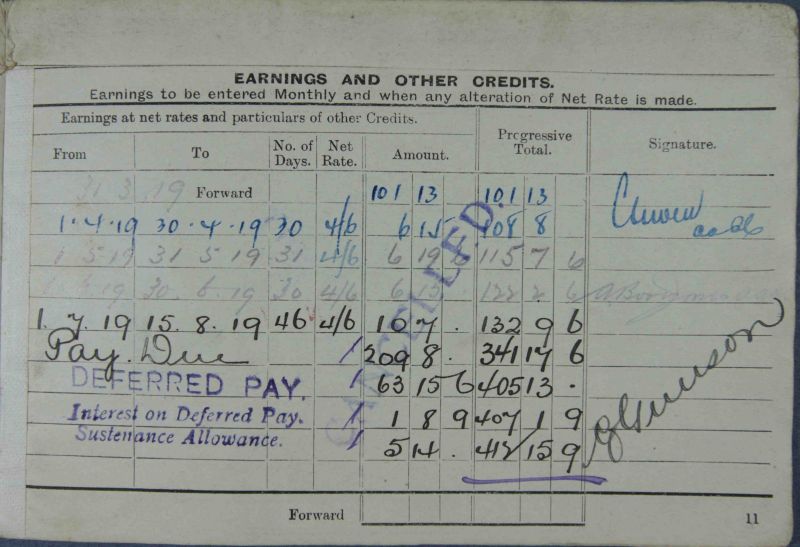 EARNINGS AND OTHER CREDITS.
Earnings to be entered Monthly and when any alteration of Net Rate is made.
Earnings at net rates and particulars of other Credits.
From To No. of Days. Net Rate. Amount. Progressive Total. Signature.
31 3 19 Forward 101 13 101 13
1.4.19 30.4.19 30 4/6 6 15 108 8
1 5 19 31 5 19 31 4/6 6 19 6 115 7 6
19 30. 6. 19 30 4/6 6 15 122 2 6
1. 7. 19 15. 8. 19 46 4/6 10 7 . 132 9 6
Pay. Due / 209 8 . 341 17 6
DEFERRED PAY. / 63 15 6 405 13 .
Interest on Deferred Pay. / 1 8 9 407 1 9
Sustenance Allowance. / 5 14 . 412 15 9
CANCELLED.
Forward
11